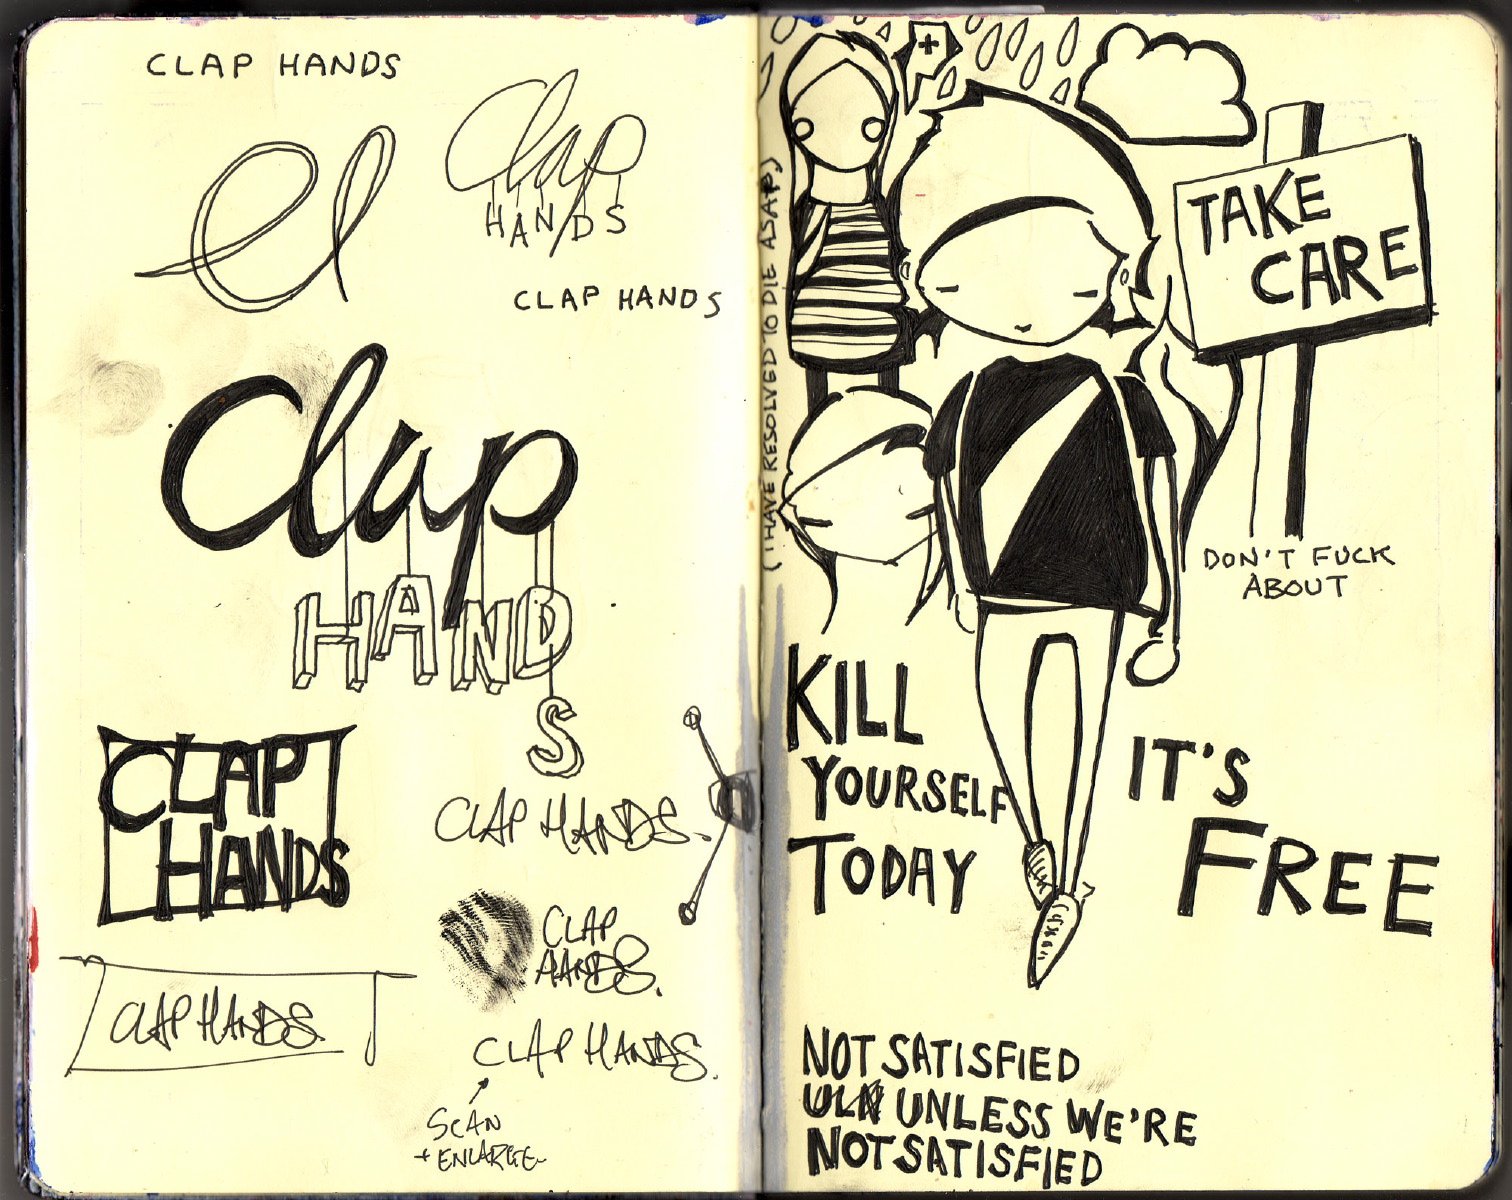 CLAP HANDS
el
Clap
HANDS
CLAP HANDS
Clap
HANDS
CLAP HANDS.
CLAP
HANDS
CLAP
HANDS.
CLAP HANDS.
CLAP HANDS.
SCAN
+ ENLARGE
+
(I HAVE RESOLVED TO DIE ASAP)
TAKE
CARE
DON'T FUCK
ABOUT
KILL
YOURSELF
TODAY
IT'S
FREE
NOT SATISFIED
UNLESS WE'RE
NOT SATISFIED